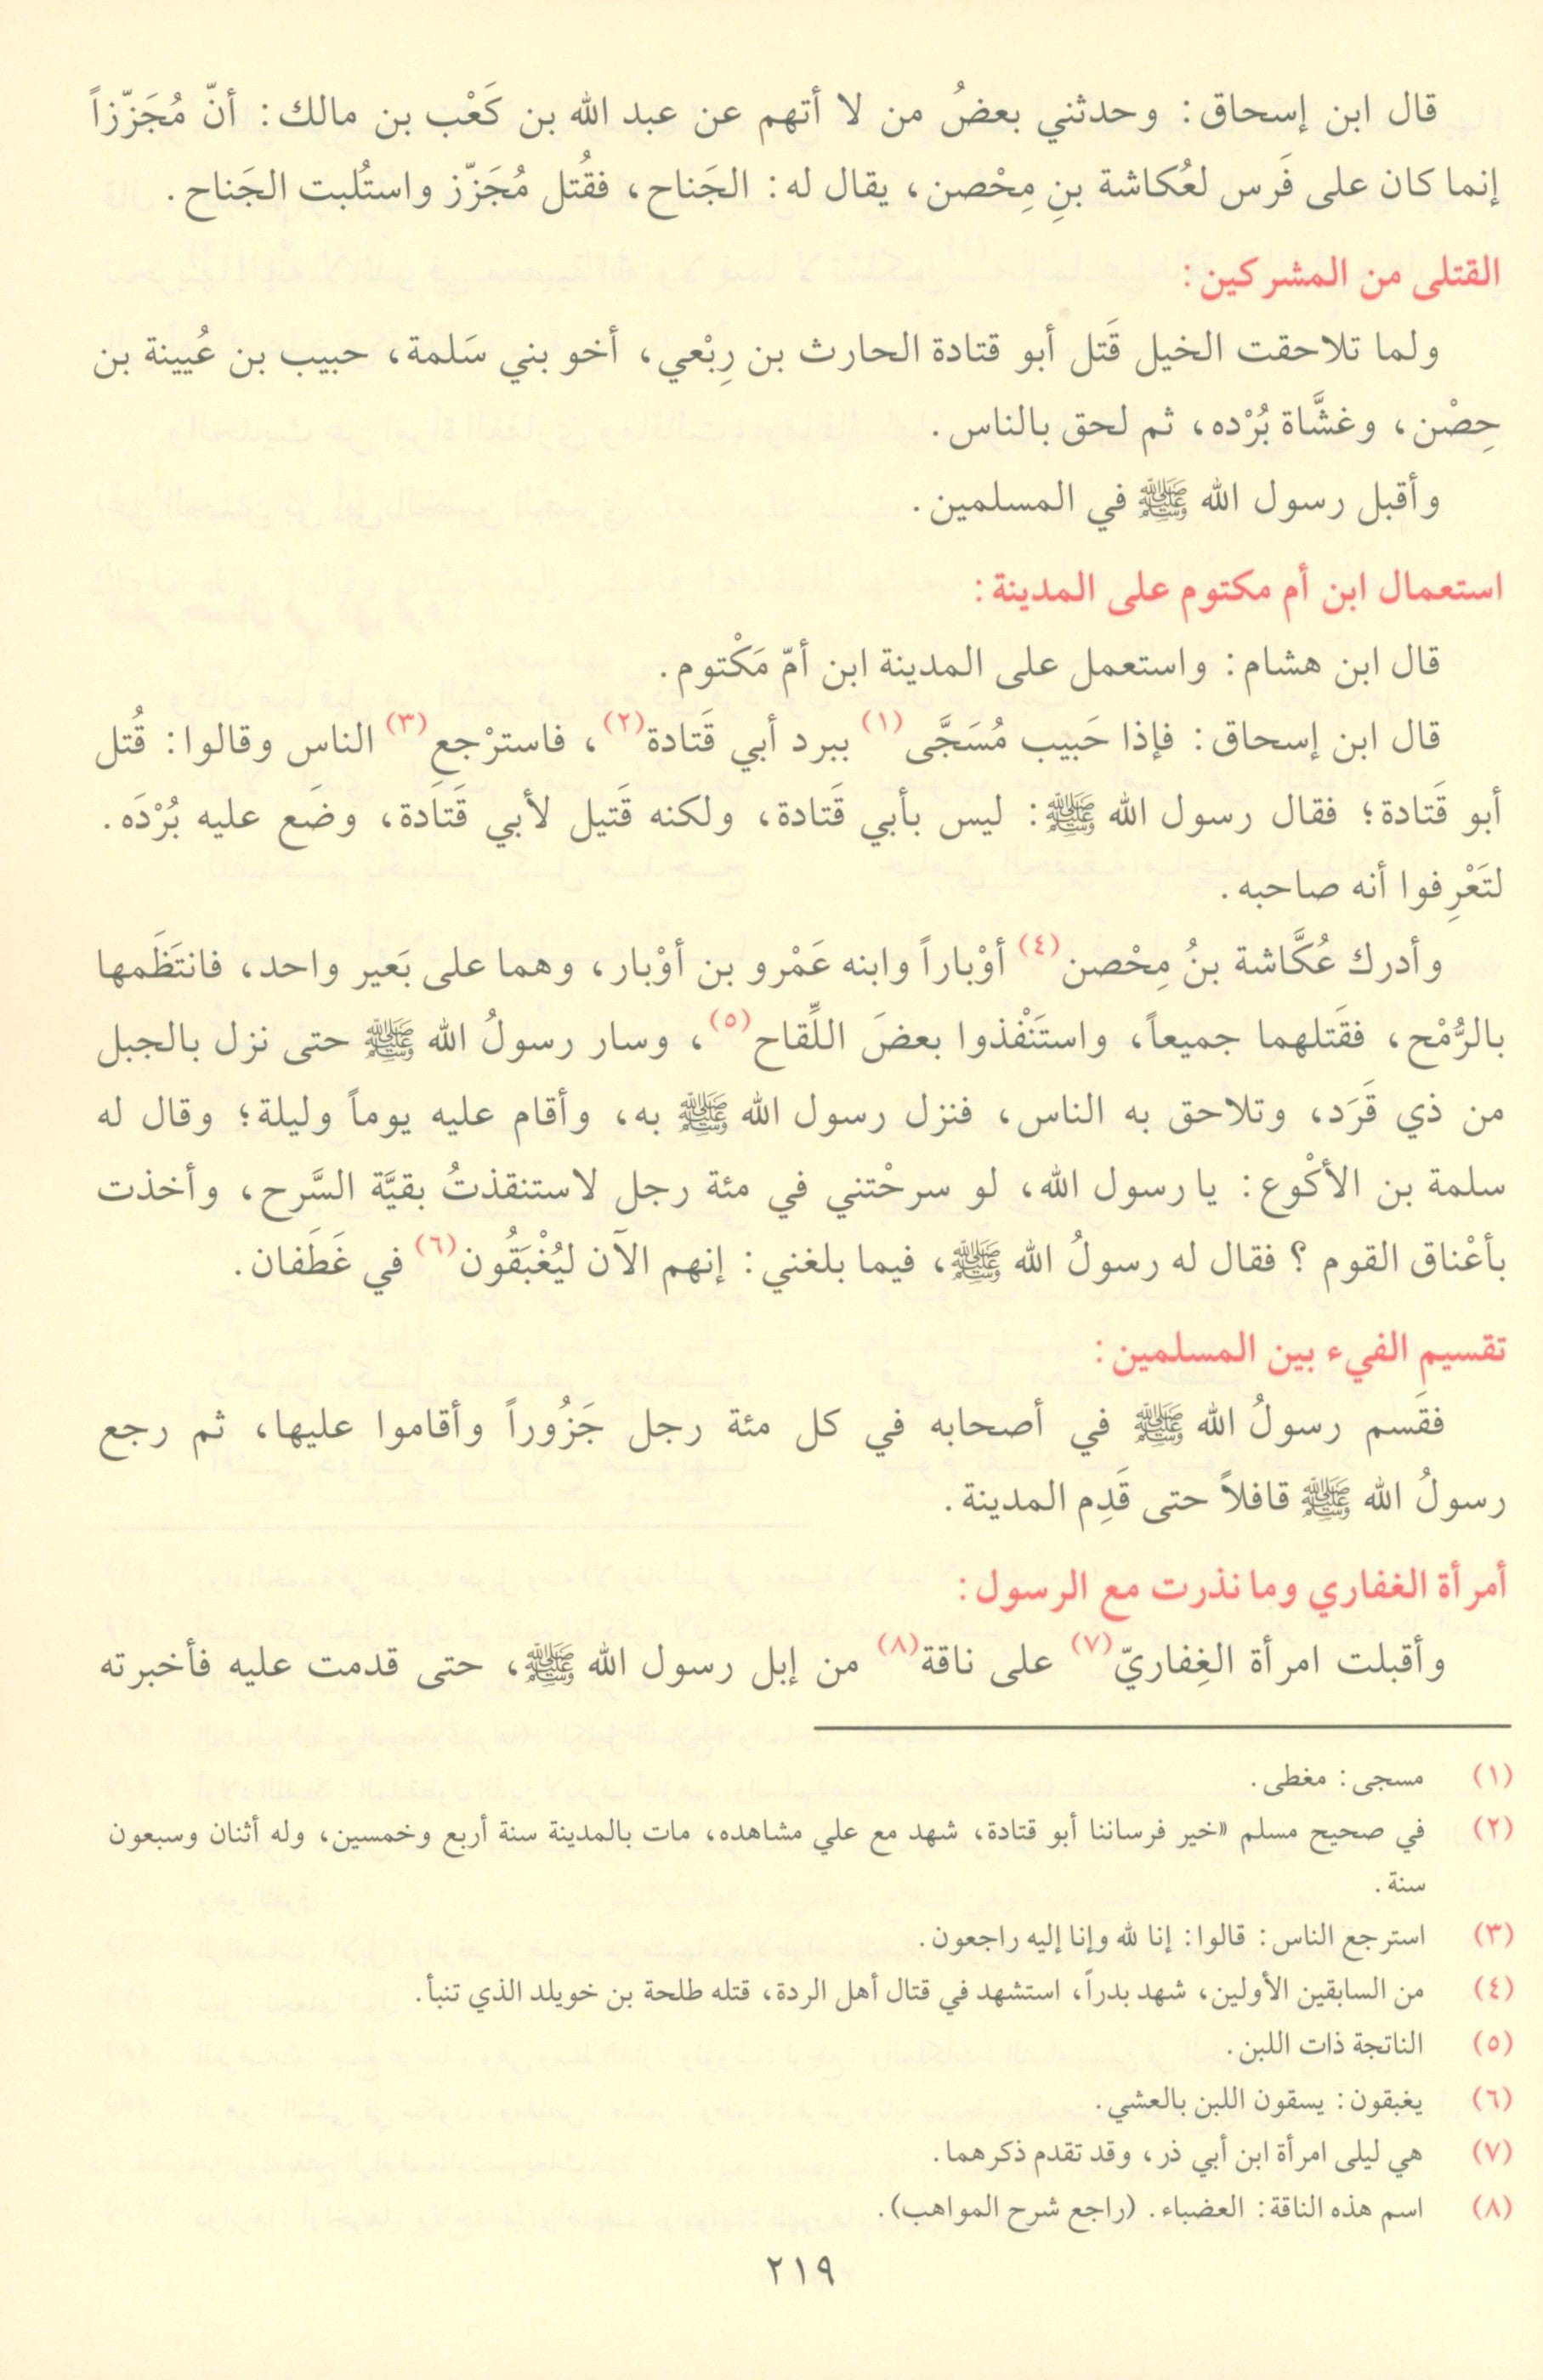 قال ابن إسحاق: وحدثني بعضُ من لا أتهم عن عبد الله بن كَعْب بن مالك: أنّ مُجَزّزاً
إنما كان على فَرس لعُكاشة بنِ مِحْصن، يقال له: الجَناح، فقُتل مُجَزّز واستُلبت الجَناح.
القتلى من المشركين:
ولما تلاحقت الخيل قَتل أبو قتادة الحارث بن رِبْعي، أخو بني سَلمة، حبيب بن عُيينة بن
حِصْن، وغشَّاة بُرْده، ثم لحق بالناس.
وأقبل رسول الله ﷺ في المسلمين.
استعمال ابن أم مكتوم على المدينة:
قال ابن هشام: واستعمل على المدينة ابن أمّ مَكْتوم.
قال ابن إسحاق: فإذا حَبيب مُسَجَّى(١) ببرد أبي قَتادة(٢)، فاسترْجع(٣) الناس وقالوا: قُتل
أبو قَتادة؛ فقال رسول الله ﷺ: ليس بأبي قَتادة، ولكنه قَتيل لأبي قَتادة، وضَع عليه بُرْدَه.
لتَعْرِفوا أنه صاحبه.
وأدرك عُكَّاشة بنُ مِحْصن(٤) أوْباراً وابنه عَمْرو بن أوْبار، وهما على بَعير واحد، فانتَظَمها
بالرُّمْح، فقَتلهما جميعاً، واستَنْفذوا بعضَ اللِّقاح(٥)، وسار رسولُ الله ﷺ حتى نزل بالجبل
من ذي قَرَد، وتلاحق به الناس، فنزل رسول الله ﷺ به، وأقام عليه يوماً وليلة؛ وقال له
سلمة بن الأكْوع: يا رسول الله، لو سرحْتني في مئة رجل لاستنقذتُ بقيَّة السَّرح، وأخذت
بأعْناق القوم؟ فقال له رسولُ الله ﷺ، فيما بلغني: إنهم الآن ليُغْبَقُون(٦) في غَطَفان.
تقسيم الفيء بين المسلمين:
فقَسم رسولُ الله ﷺ في أصحابه في كل مئة رجل جَزُوراً وأقاموا عليها، ثم رجع
رسولُ الله ﷺ قافلاً حتى قَدِم المدينة.
أمرأة الغفاري وما نذرت مع الرسول:
وأقبلت امرأة الغِفاريّ(٧) على ناقة(٨) من إبل رسول الله ﷺ، حتى قدمت عليه فأخبرته
(١) مسجى: مغطى.
(٢) في صحيح مسلم «خير فرساننا أبو قتادة، شهد مع علي مشاهده، مات بالمدينة سنة أربع وخمسين، وله أثنان وسبعون
سنة.
(٣) استرجع الناس: قالوا: إنا لله وإنا إليه راجعون.
(٤) من السابقين الأولين، شهد بدراً، استشهد في قتال أهل الردة، قتله طلحة بن خويلد الذي تنبأ.
(٥) الناتجة ذات اللبن.
(٦) يغبقون: يسقون اللبن بالعشي.
(٧) هي ليلى امرأة ابن أبي ذر، وقد تقدم ذكرهما.
(٨) اسم هذه الناقة: العضباء. (راجع شرح المواهب).
٢١٩